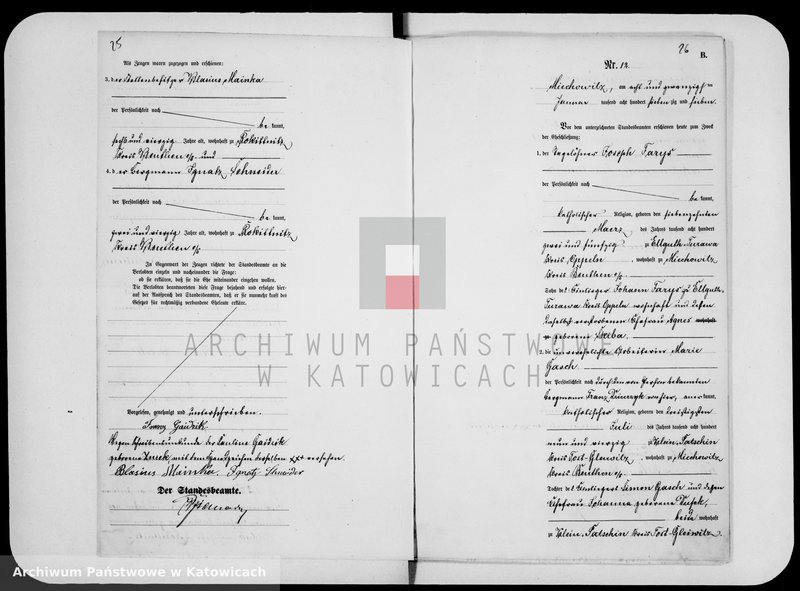 25
Als Zeugen waren zugezogen und erschienen:
3. der Stellenbesitzer Blasius Mainka
der Persönlichkeit nach
be kannt,
sechs und vierzig Jahre alt, wohnhaft zu Rokittnitz
Kreis Beuthen o/s. und
4. der Bergmann Ignatz Schneider
der Persönlichkeit nach
be kannt,
zwei und vierzig Jahre alt, wohnhaft zu Rokittnitz
Kreis Beuthen o/s
In Gegenwart der Zeugen richtete der Standesbeamte an die
Verlobten einzeln und nacheinander die Frage:
ob sie erklären, daß sie die Ehe miteinander eingehen wollen.
Die Verlobten beantworteten diese Frage bejahend und erfolgte hier-
auf der Ausspruch des Standesbeamten, daß er sie nunmehr kraft des
Gesetzes für rechtmäßig verbundene Eheleute erkläre.
Vorgelesen, genehmigt und unterschrieben.
Franz Gaidzik
Wegen Schreibensunkunde der Pauline Gaidzik
geborene mit dem Handzeichen derselben xx+ versehen.
Blasius Mainka Ignatz Schneider
Der Standesbeamte.
26
B.
Nr. 12.
Miechowitz, am acht und zwanzigsten
Januar tausend acht hundert sieben zig und sieben.
Vor dem unterzeichneten Standesbeamten erschienen heute zum Zweck
der Eheschließung:
1. der Tagelöhner Joseph Farys
der Persönlichkeit nach
be kannt,
katholischer Religion, geboren den siebenzehnten
Maerz des Jahres tausend acht hundert
zwei und fünfzig zu Ellguth Turawa
Kreis Oppeln, wohnhaft zu Miechowitz
Kreis Beuthen o/s.
Sohn des Einlieger Johann Farys zu Ellguth-
Turawa Kreis Oppeln wohnhaft und dessen
daselbst verstorbenen Ehefrau Agnes wohnhaft
zu geborene Saeba.
2. die unverehelichte Arbeiterin Marie
Gasch
der Persönlichkeit nach durch den von Person bekannten
Bergmann Franz aner kannt,
katholischer Religion, geboren den dreißigsten
Juli des Jahres tausend acht hundert
neun und vierzig zu Klein-Patschin
Kreis Tost-Gleiwitz, wohnhaft zu Miechowitz
Kreis Beuthen o/s.
Tochter des Einliegers Simon Gasch und dessen
Ehefrau Johanna geborene
beide wohnhaft
zu Klein-Patschin Kreis Tost-Gleiwitz.
ARCHIWUM PAŃSTWOWE
W KATOWICACH
Archiwum Państwowe w Katowicach